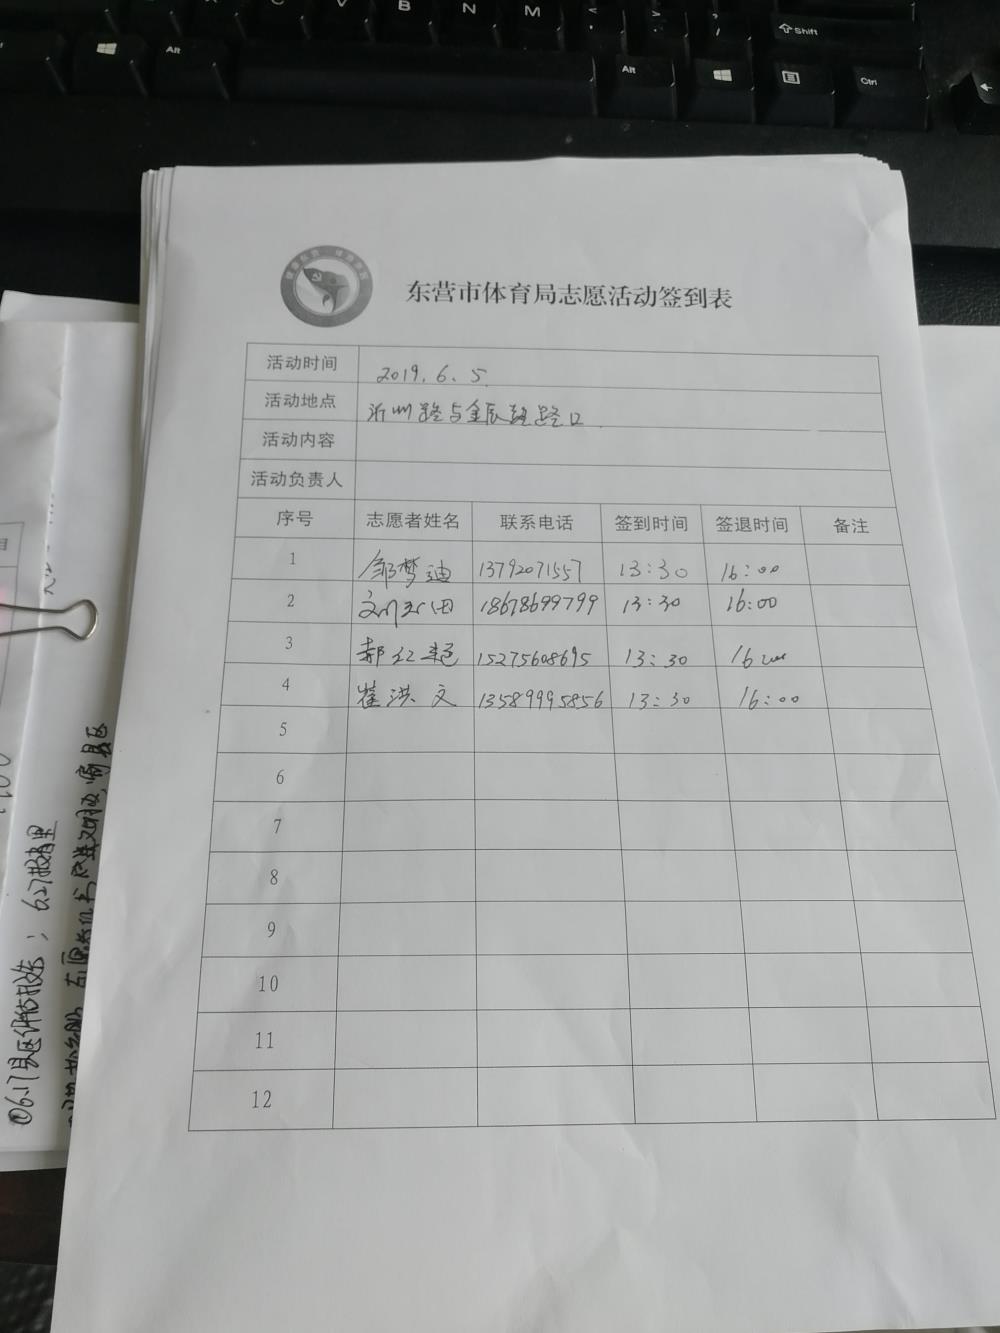 C V B N M
Alt Alt Ctrl
Shift
东营市体育局志愿活动签到表
活动时间 2019.6.5
活动地点 沂州路与金辰路路口
活动内容
活动负责人
序号 志愿者姓名 联系电话 签到时间 签退时间 备注
1 邹梦迪 13792071557 13:30 16:00
2 18678699799 13:30 16:00
3 郝红艳 15275608695 13:30 16:00
4 崔洪文 13589995856 13:30 16:00
5
6
7
8
9
10
11
12